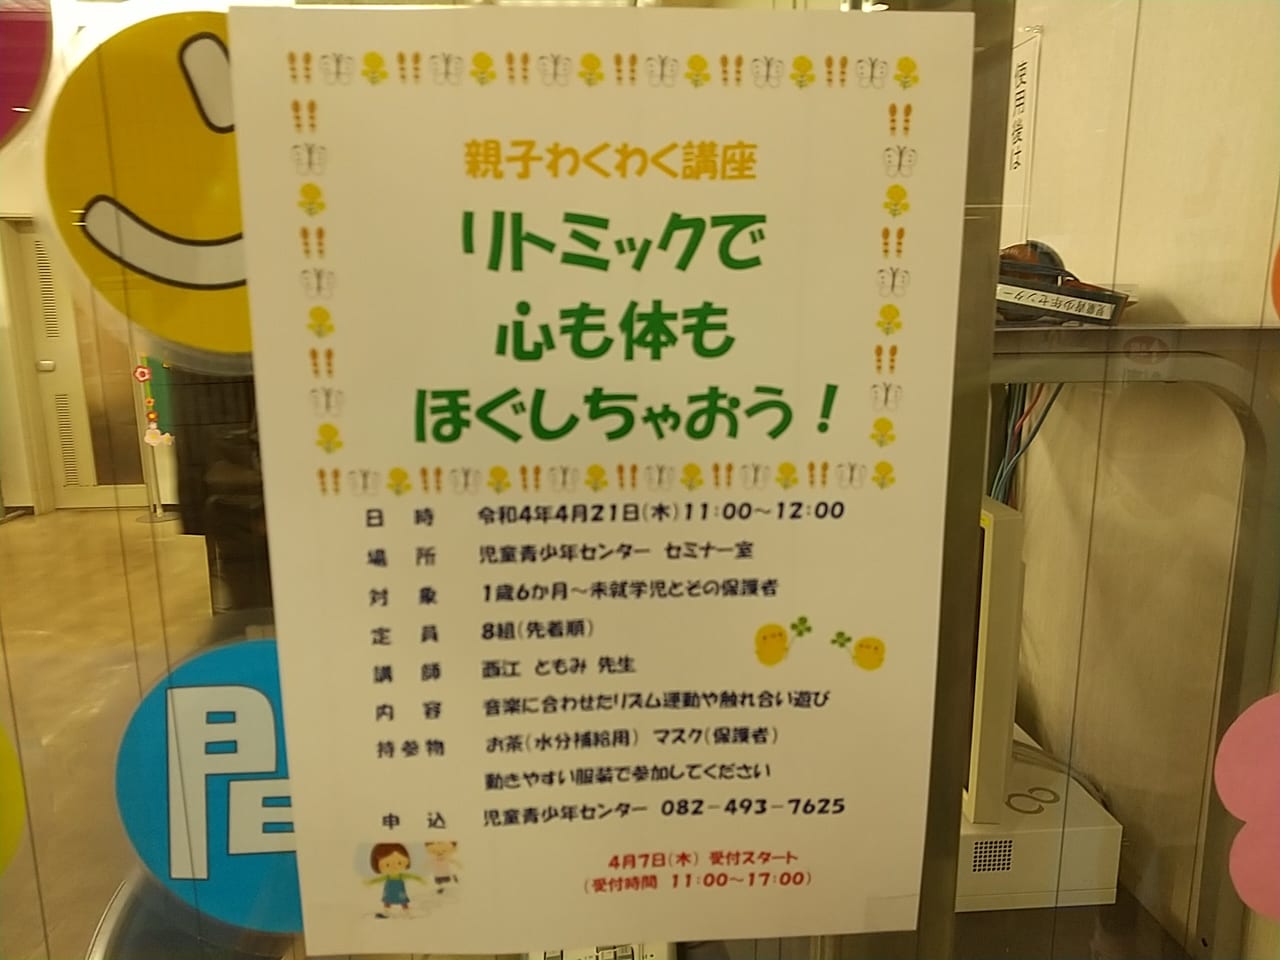 親子わくわく講座
リトミックで
心も体も
ほぐしちゃおう！
日 時 令和4年4月21日(木)11:00～12:00
場 所 児童青少年センター セミナー室
対 象 1歳6か月～未就学児とその保護者
定 員 8組(先着順)
講 師 西江 ともみ 先生
内 容 音楽に合わせたリズム運動や触れ合い遊び
持参物 お茶(水分補給用) マスク(保護者)
動きやすい服装で参加してください
申 込 児童青少年センター 082－493－7625
4月7日(木) 受付スタート
(受付時間 11:00～17:00)
児童青少年センター